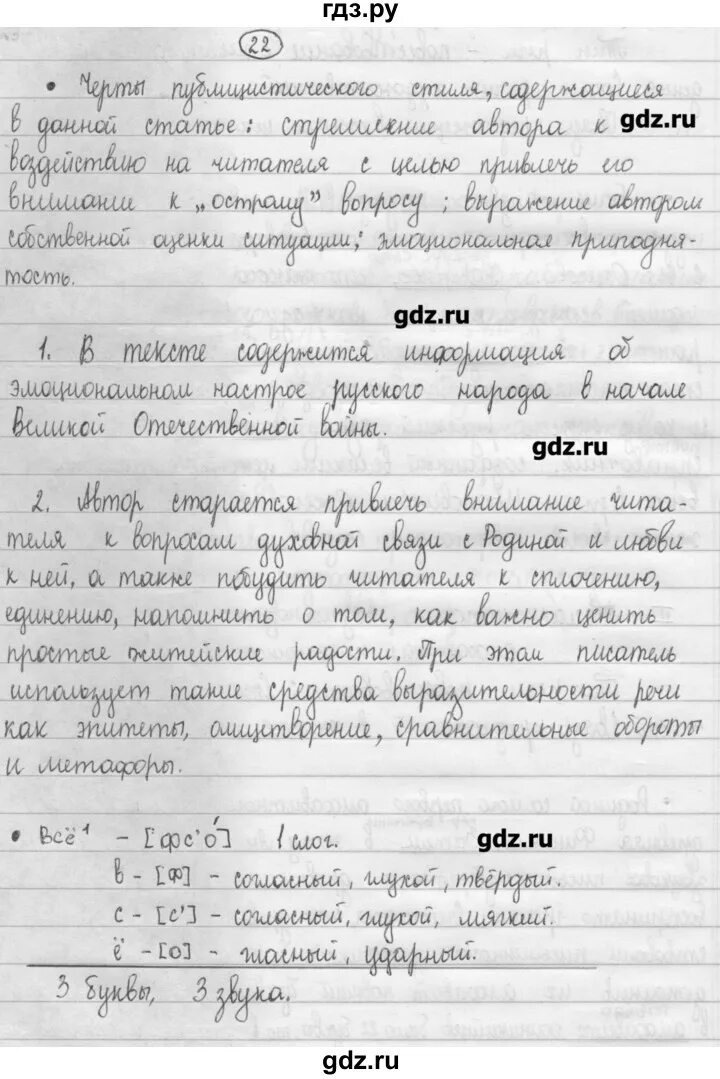 гдз.ру
22
• Черты публицистического стиля, содержащиеся
в данной статье: стремление автора к
gdz.ru
воздействию на читателя с целью привлечь его
внимание к „острому” вопросу; выражение автором
собственной оценки ситуации; эмоциональная приподня-
тость.
gdz.ru
1. В тексте содержится информация об
эмоциональном настрое русского народа в начале
Великой Отечественной войны.
gdz.ru
2. Автор старается привлечь внимание чита-
теля к вопросам духовной связи с Родиной и любви
к ней, а также побудить читателя к сплочению,
единению, напомнить о том, как важно ценить
простые житейские радости. При этом писатель
использует такие средства выразительности речи
как эпитеты, олицетворение, сравнительные обороты
и метафоры.
• Всё¹ – [фс'о́] 1 слог.
gdz.ru
в – [ф] – согласный, глухой, твёрдый.
с – [с'] – согласный, глухой, мягкий.
ё – [о] – гласный, ударный.
3 буквы, 3 звука.
gdz.ru